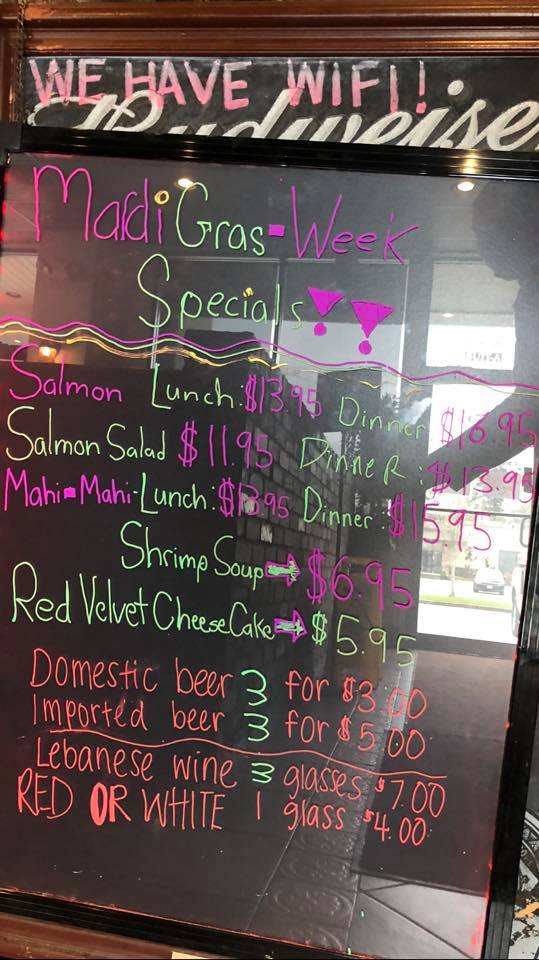 WE HAVE WIFI!
Budweiser
Mardi Gras-Week
Specials!!
Salmon Lunch:$13.95 Dinner $16.95
Salmon Salad $11.95 DinneR:$13.95
Mahi-Mahi-Lunch:$13.95 Dinner:$15.95
Shrimp Soup→$6.95
Red Velvet CheeseCake→$5.95
Domestic beer 3 for $3.00
Imported beer 3 for $5.00
Lebanese wine 3 glasses $7.00
RED OR WHITE 1 glass $4.00